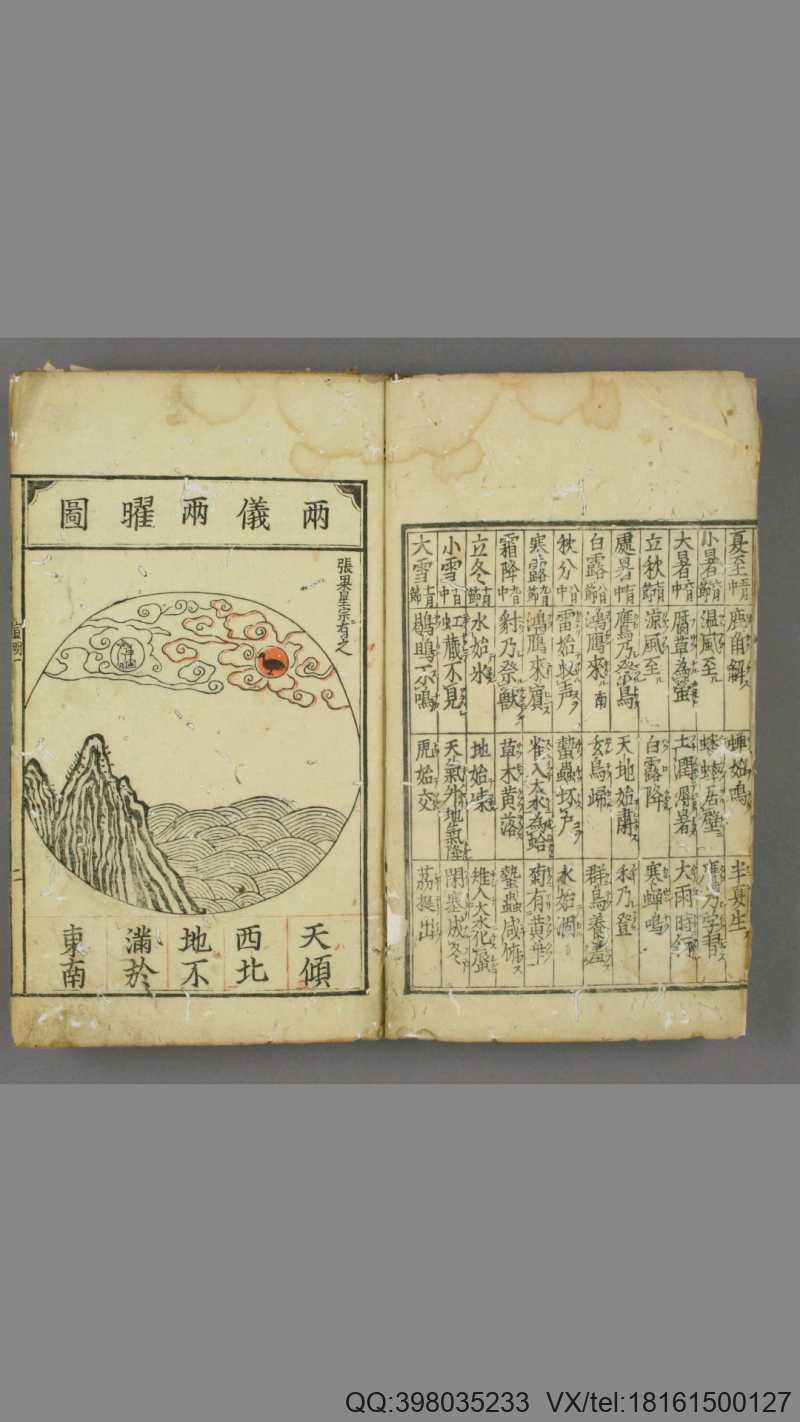 夏至 中 鹿角解 蝉始鳴 半夏生
小暑 節 温風至 蟋蟀居壁
大暑 中 腐草為螢 土潤溽暑 大雨時行
立秋 節 涼風至 白露降 寒蝉鳴
處暑 中 鷹乃祭鳥 天地始肅 禾乃登
白露 節 鴻鴈來 玄鳥歸 群鳥養羞
秋分 中 雷始收声 蟄蟲坏户 水始涸
寒露 節 鴻鴈來賓 雀入大水為蛤 菊有黄華
霜降 中 豺乃祭獸 草木黄落 蟄蟲咸俯
立冬 節 水始氷 地始凍 雉入大水化蜃
小雪 中 虹蔵不見 天氣升地氣降 閉塞成冬
大雪 節 鶡鴠不鳴 虎始交 茘挺出
兩儀兩曜圖
張果星宗有之
天傾
西北
地不
滿於
東南
QQ:398035233 VX/tel:18161500127